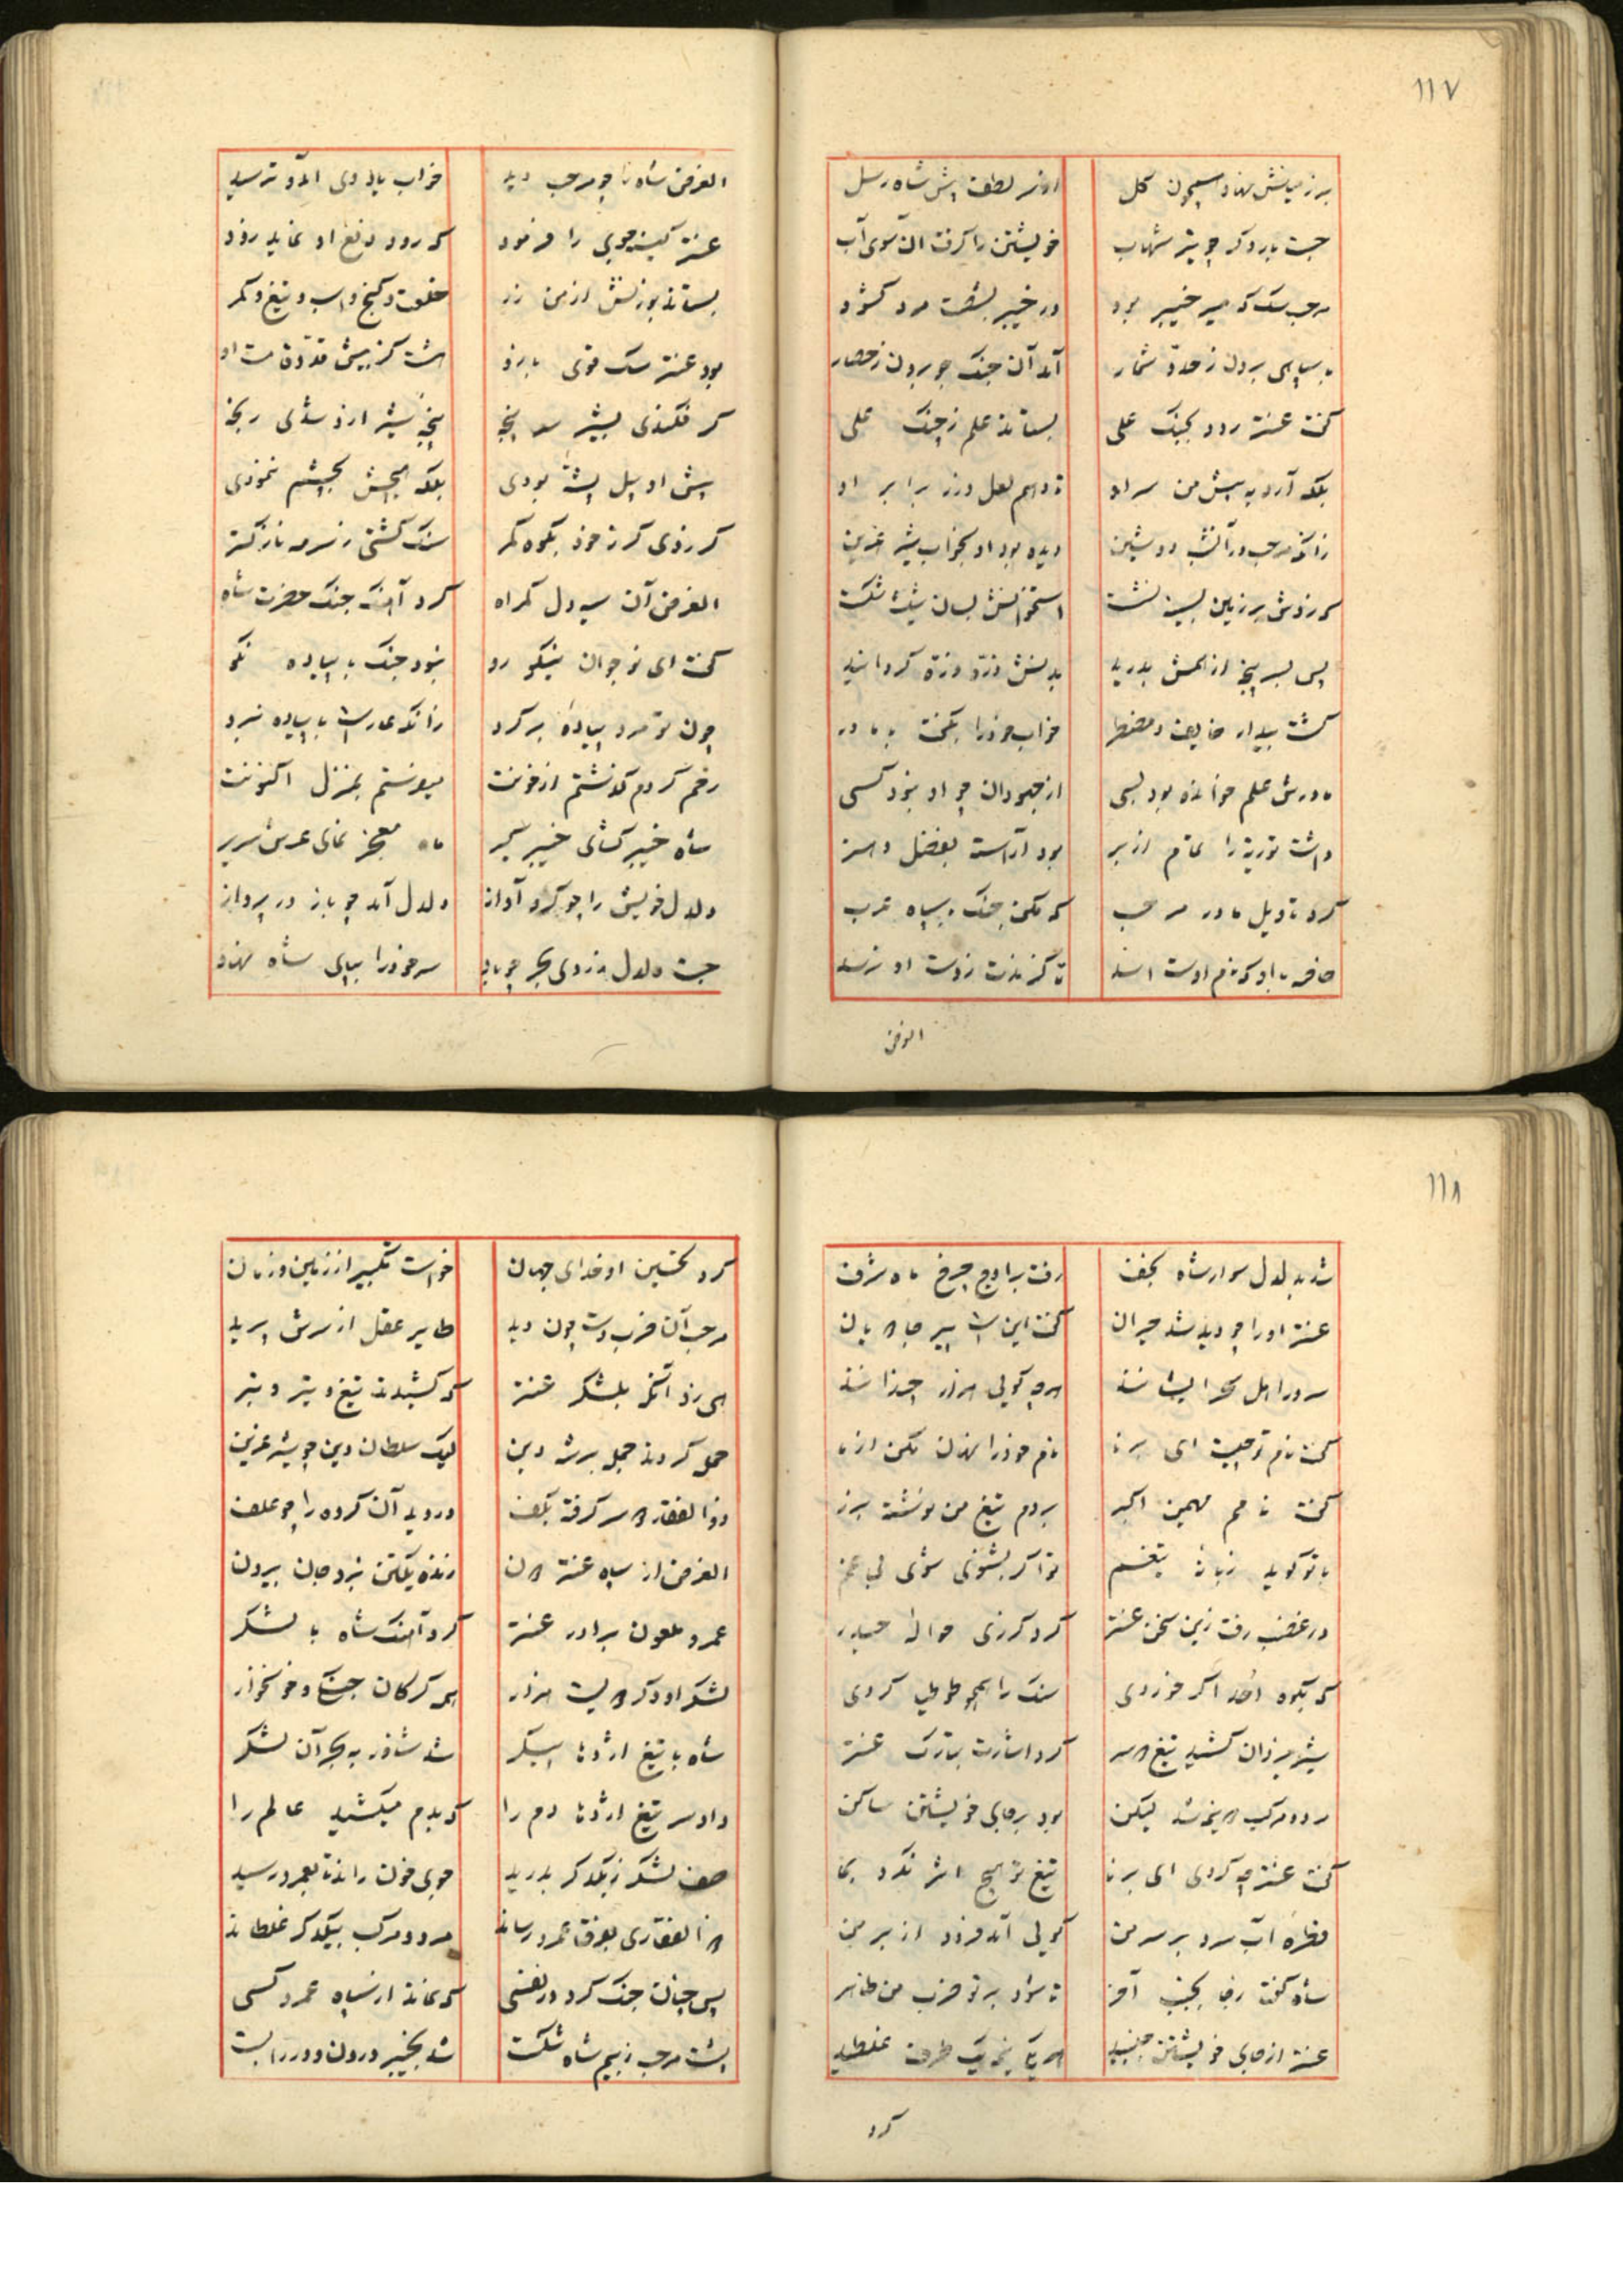 ۱۱۷
برزمینش نهاد همچون گل از سر لطف پیش شاه رسل
جست بار دگر چو تیر شهاب خویشتن را گرفت آن سوی آب
مرحب سک که میر خیبر بود در خیبر بگشت مرد کشود
با سپاهی برون ز حد و شمار آمد آن جنک جو برون ز حصار
گفت عنتر رود بجنک علی بستاند علم ز چنک علی
بلکه آرد به پیش من سر او تا دهم لعل و زر برابر او
زانکه مرحب در آن شب دوشین دیده بود او بخواب شیر عرین
که زدش بر زمین به پشت نشست استخوانش بسان شیشه شکست
پس بسر پنجه از همش بدرید بدنش ذره ذره گردانید
گشت بیدار خایف و مضطر خواب خود را بگفت با مادر
مادرش علم خوانده بود بسی از جهودان چو او نبود کسی
داشت توریة را تمام از بر بود آراسته بفضل و هنر
کرد تاویل مادر مرحب که مکن جنک با سپاه عرب
خاصه با او که نام اوست اسد تا گزندت ز دست او نرسد
الغرض
الغرض شاه را چو مرحب دید خواب یاد وی آمد و ترسید
عنتر کینه جوی را فرمود که رود دفع او نماید زود
بستاند بوزنش از من زر خلعت و گنج و اسب و تیغ و کمر
بود عنتر سک قوی بارزو هشت گز بیش قد و قامت او
گر فکندی بشیر سر پنجه پنجهٔ شیر ازو شدی رنجه
پیش او پیل پشهٔ بودی بلکه هیچش بچشم ننمودی
گر زدی گرز خود بکوه کمر سنک گشتی ز سرمه نازکتر
الغرض آن سیه دل گمراه کرد آهنک جنک حضرت شاه
گفت ای نوجوان نیکو رو نبود جنک با پیاده نکو
چون تو مرد پیادهٔ برگرد زانکه عار است با پیاده نبرد
رحم کردم گذشتم از خونت میفرستم بمنزل اکنونت
شاه خیبر گشای خیبر گیر ماه معجز نمای عرش سریر
دلدل خویش را چو کرد آواز دلدل آمد چو باز در پرواز
جست دلدل ز روی بحر چو باد سر خود را بپای شاه نهاد
۱۱۸
شد بدلدل سوار شاه نجف رفت بر اوج چرخ ماه شرف
عنتر او را چو دید شد حیران گفت این است پیر جادویان
سرور اهل سحر ایشانند هرچه گویی هزار چندانند
گفت نام تو چیست ای برنا نام خود را نهان مکن از ما
گفت نامم مهین اکبر بر دم تیغ من نوشته بزر
با تو گوید زبانهٔ تیغم تو اگر بشنوی شوی بی غم
در غضب رفت زین سخن عنتر کرد گرزی حوالهٔ حیدر
که بکوه احد اگر خوردی سنک را همچو طوطیا کردی
شیر یزدان کشید تیغ دو سر کرد اشارت بتارک عنتر
مرد و مرکب دو نیمه شد لیکن بود بر جای خویشتن ساکن
گفت عنتر چه کردی ای برنا تیغ تو هیچ اثر نکرد بما
قطرهٔ آب سرد بر سر من گویی آمد فرود از بر من
شاه گفتا ز جا بجنب آخر تا شود بر تو ضرب من ظاهر
عنتر از جای خویشتن جنبید هر یکی نیمه یک طرف غلطید
کرد
کرد تحسین او خدای جهان خواست تکبیر از زمین و زمان
مرحب آن ضرب دست چون دید طایر عقل از سرش بپرید
هی زد آنگه بلشکر عنتر که کشیدند تیغ و تیر و تبر
حمله کردند جمله بر شه دین لیک سلطان دین چو شیر عرین
ذوالفقار دو سر گرفته بکف دروید آن گروه را چو علف
الغرض از سپاه عنتر دون زنده یکتن نبرد جان بیرون
عمرو ملعون برادر عنتر کرد آهنک شاه با لشکر
لشکر او دگر دویست هزار همه گرگان جنگی و خونخوار
شاه با تیغ اژدها پیکر شد شناور به بحر آن لشکر
داد سر تیغ اژدها دم را که بدم میکشید عالم را
صف لشکر ز یکدگر بدرید جوی خون راند تا بعمرو رسید
ذوالفقاری بفرق عمرو رساند مرد و مرکب بیکدگر غلطاند
پس چنان جنک کرد در نفسی که نماند از سپاه عمرو کسی
پشت مرحب ز بیم شاه شکست شد بخیبر درون و در را بست